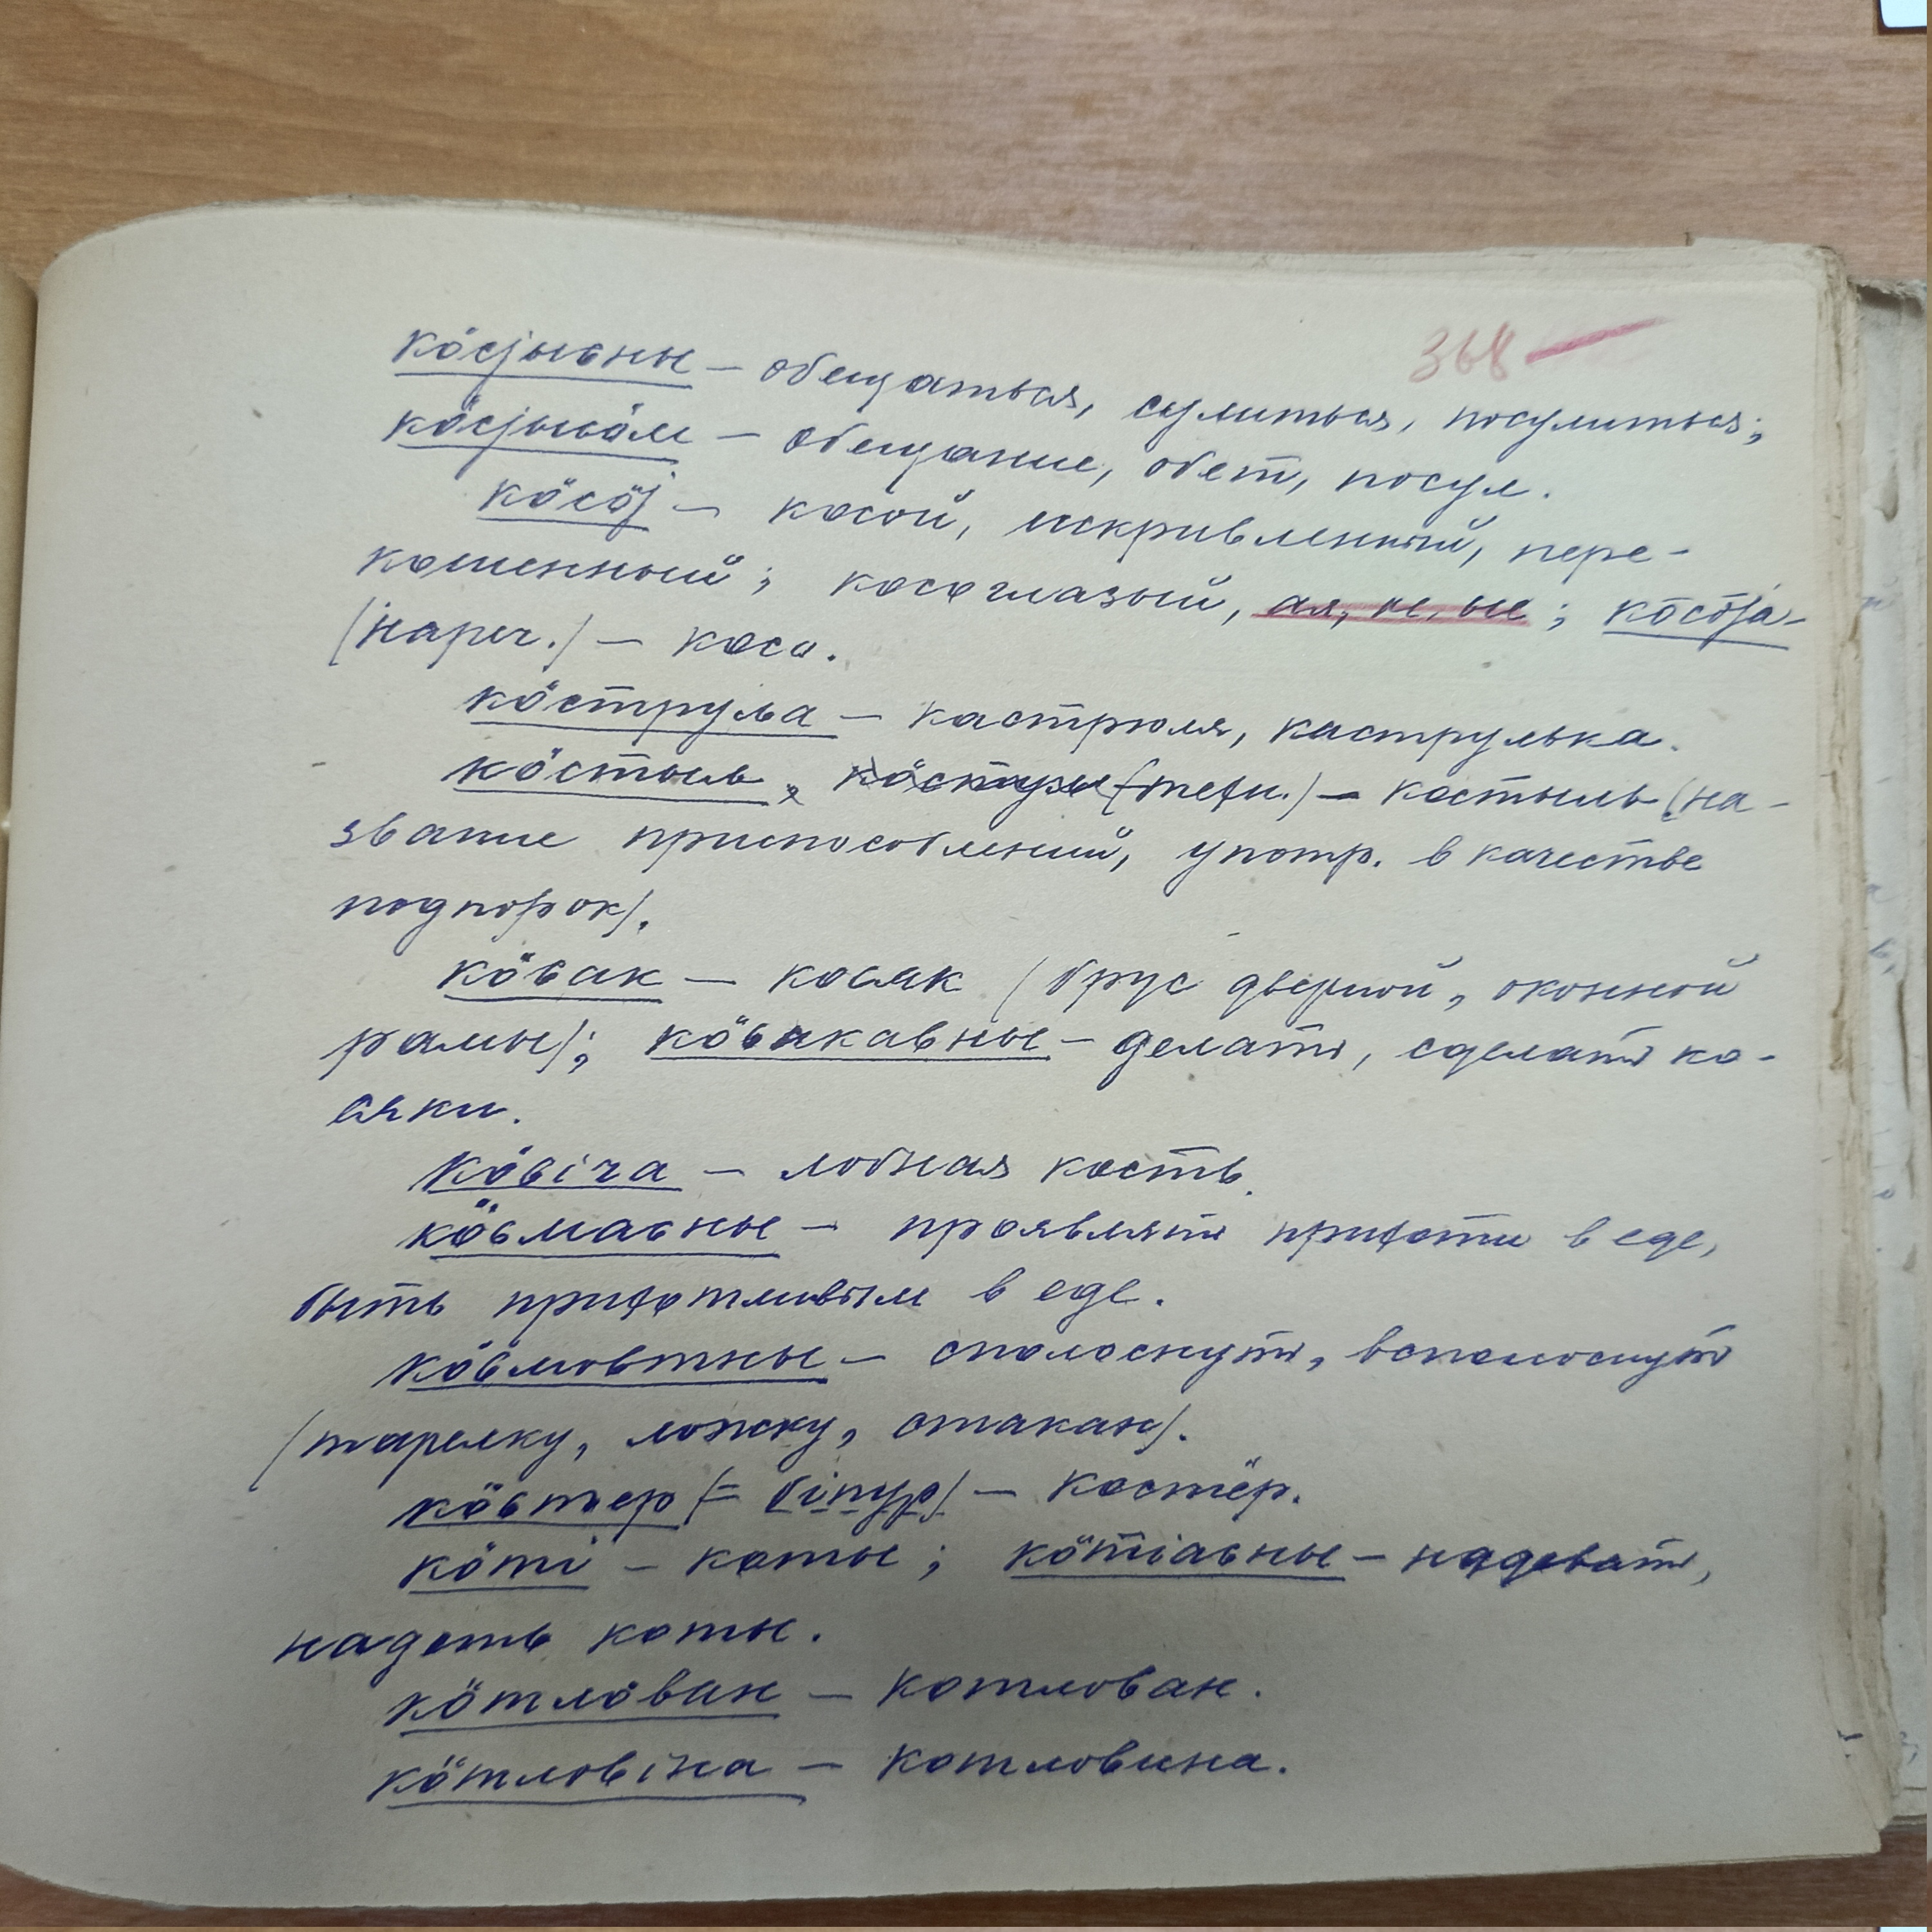 368
кӧсјыԍны – обещаться, сулиться, посулиться;
кӧсјыԍӧм – обещание, обет, посул.
кӧсӧј – косой, искривленный, пере-
кошенный; косоглазый, ая, ое, ые; кӧсӧја –
(нареч.) – косо.
кӧструԉа – кастрюля, каструлька.
кӧстыԉ, кӧстуры (техн.) – костыль (на-
звание приспособлений, употр. в качестве
подпорок).
кӧԍак – косяк (брус дверной, оконной
рамы); кӧԍакавны – делать, сделать ко-
сяки.
кӧԍіча – лобная кость.
кӧԍмаԍны – проявлять прихоти в еде,
быть прихотливым в еде.
кӧԍмовтны – сполоснуть, всполоснуть
(тарелку, ложку, стакан).
кӧԍтер (= біпур) – костёр.
кӧті – коты; кӧтіаԍны – надевать,
надеть коты.
кӧтлӧван – котлован.
кӧтловіна – котловина.